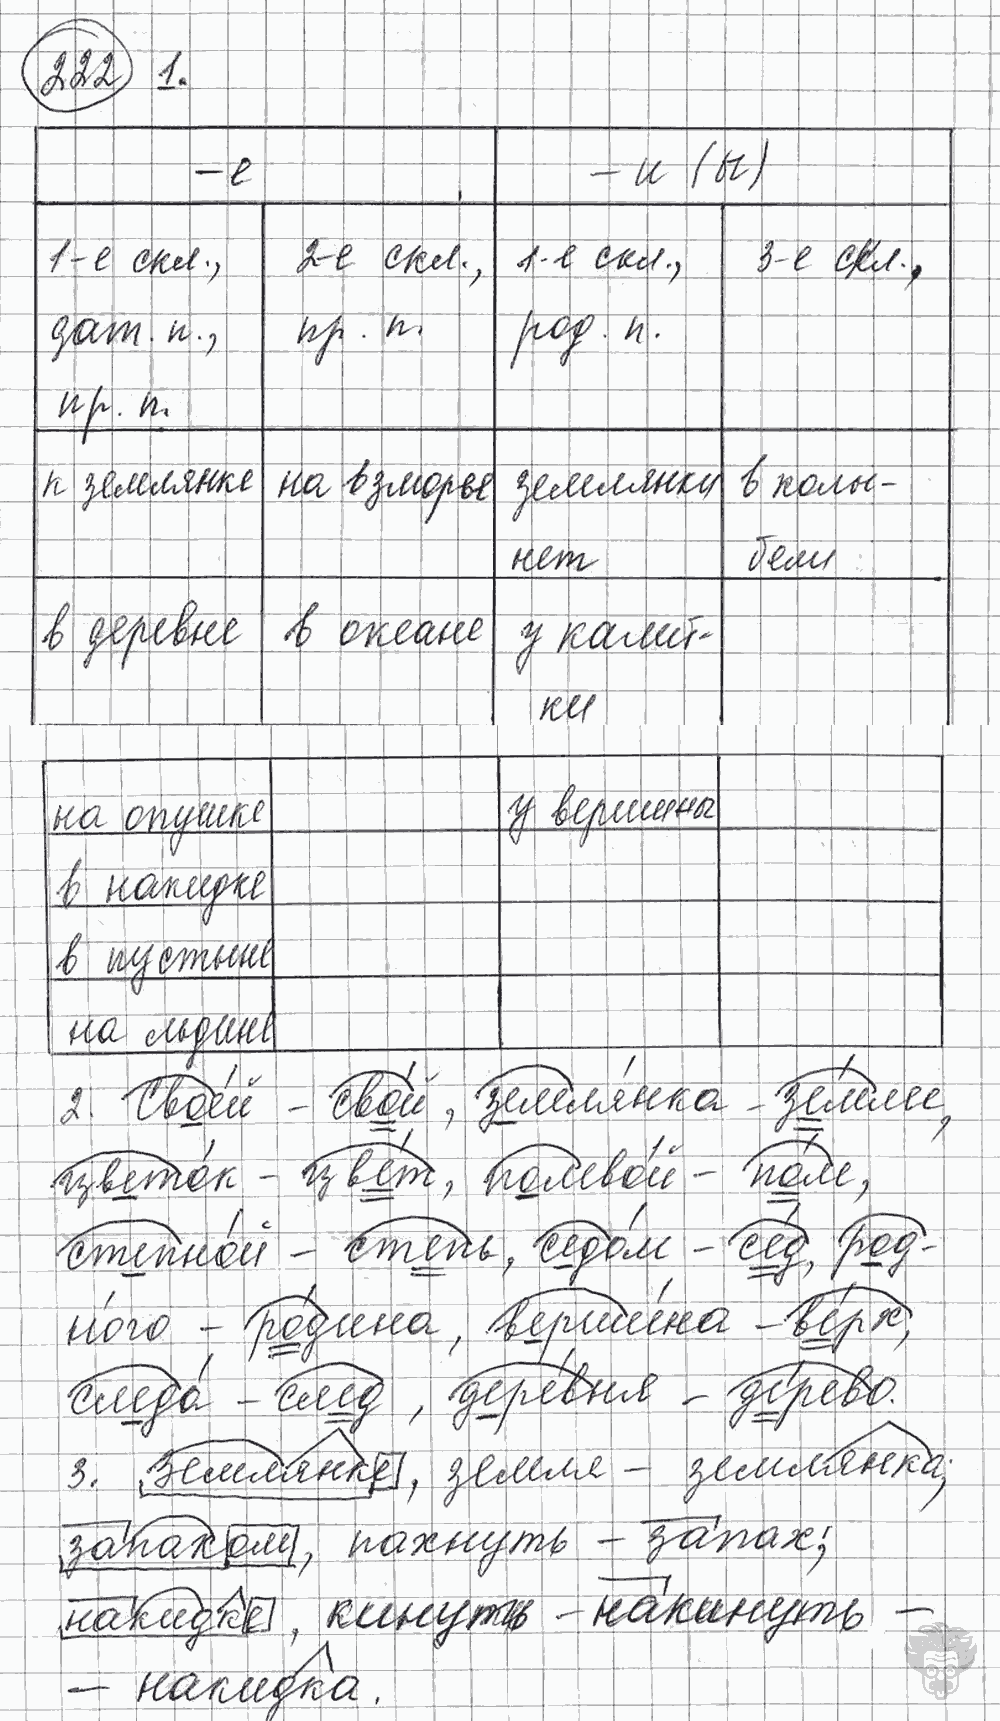 222 1.
-е -и (ы)
1-е скл., 2-е скл., 1-е скл., 3-е скл.,
дат. п., пр. п. род. п.
пр. п.
к землянке на взморье землянки в колы-
нет бели
в деревне в океане у калит-
ки
на опушке у вершины
в накидке
в пустыне
на льдине
2. Свое́й – свой, земля́нка – зе́мли,
цвето́к – цвет, полево́й – по́ле,
степно́й – степь, седо́м – сед, род-
но́го – ро́дина, верши́на – верх,
следа́ – след, дере́вня – де́рево.
3. Землянке, земля – землянка;
запахом, пахнуть – запах;
накидке, кинуть – накинуть –
– накидка.